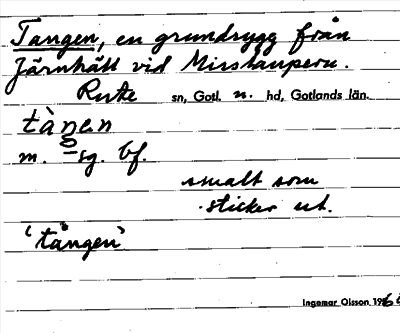 Tangen, en grundrygg från
Järnhätt vid Minstauperu.
Rute sn, Gotl. n. hd, Gotlands län.
tàŋən
m. sg. bf.
smalt som
sticker ut.
‘tången’
Ingemar Olsson. 196